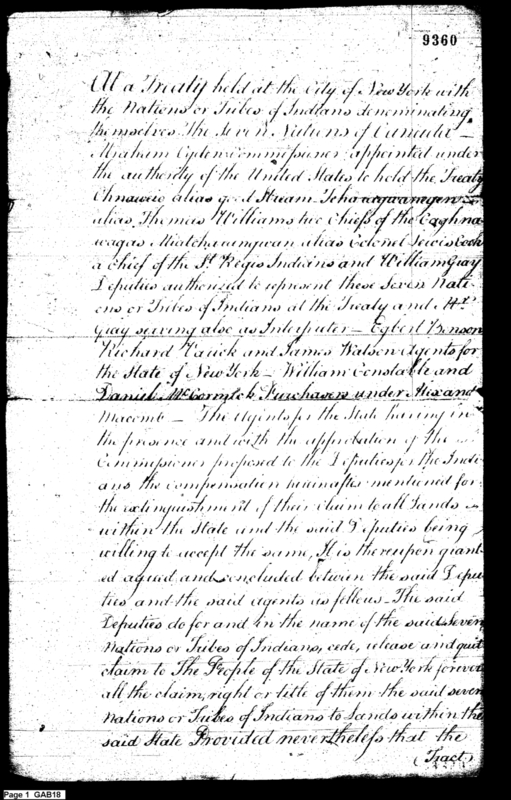 9360
At a Treaty held at the City of New York with
the Nations or Tribes of Indians denominating
themselves The Seven Nations of Canada —
Abraham Ogden Commissioner appointed under
the authority of the United States to hold the Treaty
Ohnaweio alias good Stream
alias Thomas Williams two Chiefs of the Caghna
wagas Atiatoharongwan alias Colonel Lewis Cook
a Chief of the St Regis Indians and William Gray
Deputies authorized to represent these Seven Nati
ons or Tribes of Indians at the Treaty and Mr
Gray serving also as Interpreter — Egbert Benson
Richard Varick and James Watson Agents for
the State of New York — William Constable and
Daniel McCormick Purchasers under Alexand
Macomb — The Agents for the State having in
the presence and with the approbation of the
Commissioner proposed to the Deputies for the Indi
ans the compensation hereinafter mentioned for
the extinguishment of their claim to all Lands
within the State and the said Deputies being
willing to accept the same, It is thereupon grant
ed agreed and concluded between the said Depu
ties and the said agents as follows — The said
Deputies do for and in the name of the said Seven
Nations or Tribes of Indians, cede, release and quit
claim to The People of the State of New York forever
all the claim, right or title of them the said seven
Nations or Tribes of Indians to Lands within the
said State Provided nevertheless that the
Tract
Page 1 GAB18